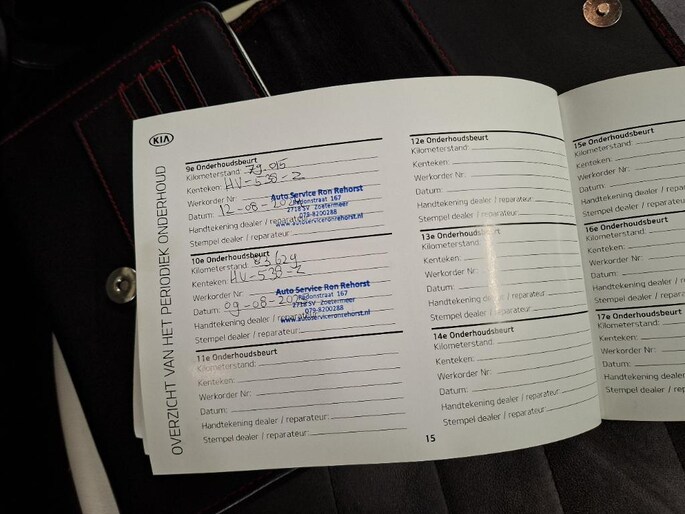 KIA
OVERZICHT VAN HET PERIODIEK ONDERHOUD
9e Onderhoudsbeurt
Kilometerstand: 79.015
Kenteken: HV-538-Z
Werkorder Nr:
Datum: 12-08-
Handtekening dealer / reparateur:
Stempel dealer / reparateur:
Auto Service Ron Rehorst
Radonstraat 167
2718 SV Zoetermeer
079-8200288
www.autoserviceronrehorst.nl
10e Onderhoudsbeurt
Kilometerstand: 83629
Kenteken: HV-538-Z
Werkorder Nr:
Datum: 09-08-
Handtekening dealer / reparateur:
Stempel dealer / reparateur:
Auto Service Ron Rehorst
Radonstraat 167
2718 SV Zoetermeer
079-8200288
www.autoserviceronrehorst.nl
11e Onderhoudsbeurt
Kilometerstand:
Kenteken:
Werkorder Nr:
Datum:
Handtekening dealer / reparateur:
Stempel dealer / reparateur:
12e Onderhoudsbeurt
Kilometerstand:
Kenteken:
Werkorder Nr:
Datum:
Handtekening dealer / reparateur:
Stempel dealer / reparateur:
13e Onderhoudsbeurt
Kilometerstand:
Kenteken:
Werkorder Nr:
Datum:
Handtekening dealer / reparateur:
Stempel dealer / reparateur:
14e Onderhoudsbeurt
Kilometerstand:
Kenteken:
Werkorder Nr:
Datum:
Handtekening dealer / reparateur:
Stempel dealer / reparateur:
15
15e Onderhoudsbeurt
Kilometerstand:
Kenteken:
Werkorder Nr:
Datum:
Handtekening dealer
Stempel dealer / rep
16e Onderhoudsbeurt
Kilometerstand:
Kenteken:
Werkorder Nr:
Datum:
Handtekening dealer
Stempel dealer / repa
17e Onderhoudsbeurt
Kilometerstand:
Kenteken:
Werkorder Nr:
Datum:
Handtekening dealer / r
Stempel dealer / repara